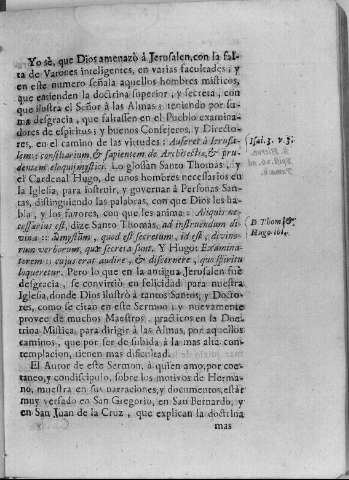 Yo sè, que Dios amenazò à Jerusalen, con la fal-
ta de Varones inteligentes, en varias facultades; y
en este numero señala aquellos hombres místicos,
que entienden la doctrina superior, y secreta, con
que ilustra el Señor à las Almas; teniendo por su-
ma desgracia, que faltassen en el Pueblo examina-
dores de espiritus; y buenos Consejeros, y Directo-
res, en el camino de las virtudes: Auferet à Jerusa-
lem: consiliarium, & sapientem de Architectis, & pru-
dentem eloquij mistici. Lo glossan Santo Thomàs, y
el Cardenal Hugo, de unos hombres necessarios en
la Iglesia, para instruir, y governar à Personas San-
tas, distinguiendo las palabras, con que Dios les ha-
bla, y los favores, con que les anima: Aliquis ne-
cessarius est, dize Santo Thomàs, ad instruendum di-
vina
quod est secretum, id est, divino-
rum verborum, quæ secreta sunt. Y Hugo: Examina-
torem: cujus erat audire, & discernere, quo spiritu
loqueretur. Pero lo que en la antigua Jerusalen fuè
desgracia, se convirtiò en felicidad para nuestra
Iglesia, donde Dios ilustrò à tantos Santos, y Docto-
res, como se citan en este Sermon; y nuevamente
provee de muchos Maestros, practicos en la Doc-
trina Mistica, para dirigir à las Almas, por aquellos
caminos, que por ser de subida à la mas alta con-
templacion, tienen mas dificultad.
El Autor de este Sermon, à quien amo, por coe-
taneo, y condiscipulo, sobre los motivos de Herma-
no, muestra en sus narraciones, y documentos, estàr
muy versado en San Gregorio, en San Bernardo, y
en San Juan de la Cruz, que explican la doctrina
mas
Isai. 3. v. 3.
D. Thom. &
Hugo. ibi.